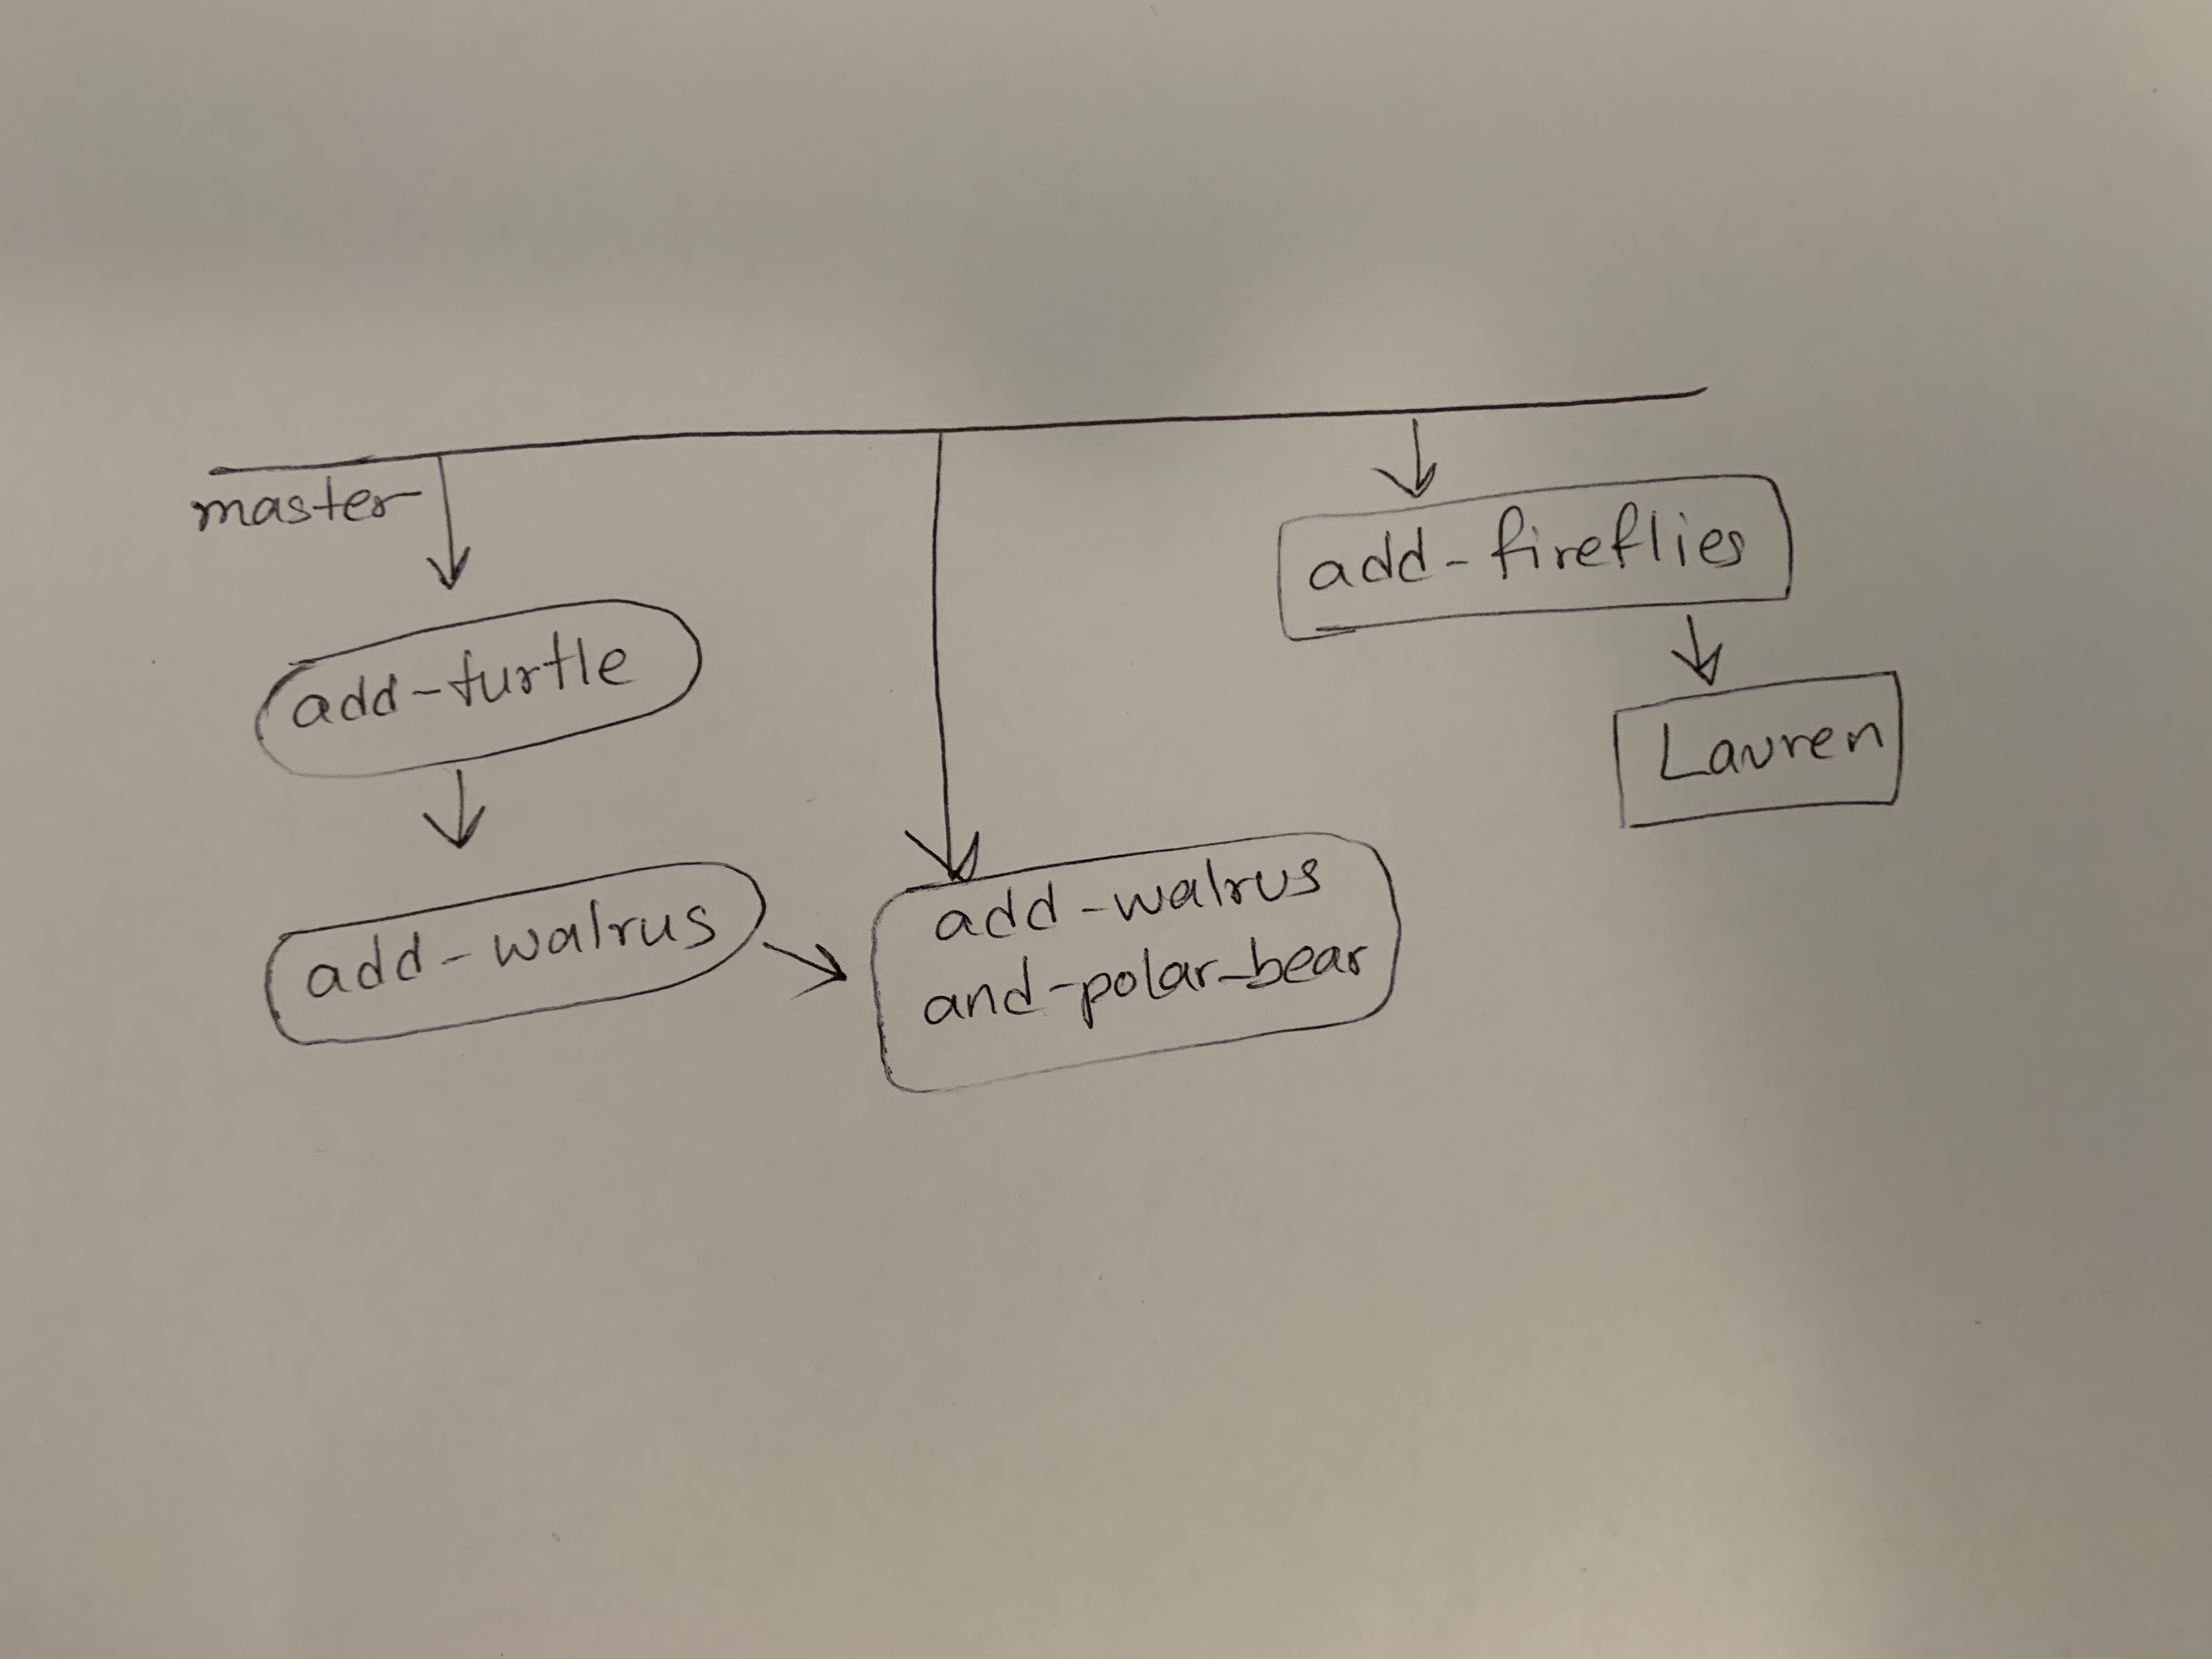 master
add-turtle
add-walrus
add-walrus
and-polar-bear
add-fireflies
Lauren